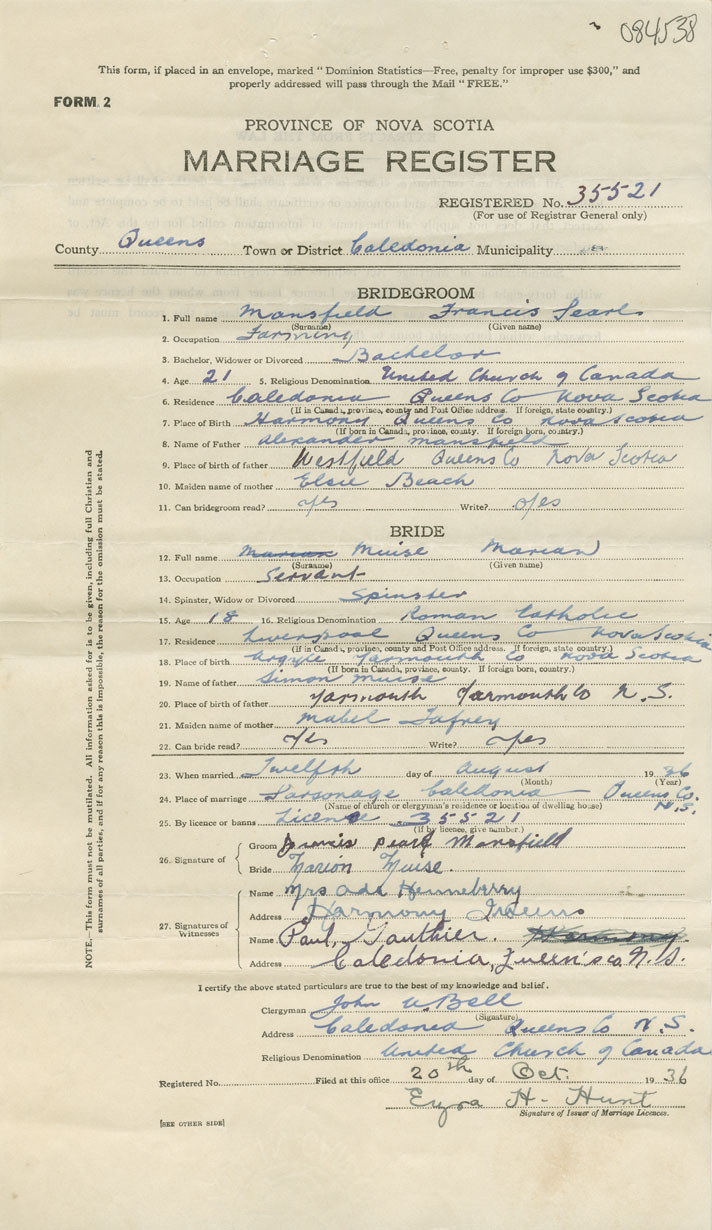 084538
This form, if placed in an envelope, marked "Dominion Statistics—Free, penalty for improper use $300," and
properly addressed will pass through the Mail "FREE."
FORM 2
PROVINCE OF NOVA SCOTIA
MARRIAGE REGISTER
REGISTERED No. 35521
(For use of Registrar General only)
County Queens Town or District Caledonia Municipality
BRIDEGROOM
1. Full name Mansfield Francis Pearl
(Surname) (Given name)
2. Occupation Farming
3. Bachelor, Widower or Divorced Bachelor
4. Age 21 5. Religious Denomination United Church of Canada
6. Residence Caledonia Queens Co Nova Scotia
(If in Canada, province, county and Post Office address. If foreign, state country.)
7. Place of Birth Harmony Queens Co Nova Scotia
(If born in Canada, province, county. If foreign born, country.)
8. Name of Father Alexander Mansfield
9. Place of birth of father Westfield Queens Co Nova Scotia
10. Maiden name of mother Elsie Beach
11. Can bridegroom read? Yes Write? Yes
BRIDE
12. Full name Marian Muise Marian
(Surname) (Given name)
13. Occupation Servant
14. Spinster, Widow or Divorced Spinster
15. Age 18 16. Religious Denomination Roman Catholic
17. Residence Liverpool Queens Co Nova Scotia
(If in Canada, province, county and Post Office address. If foreign, state country.)
18. Place of birth Argyle Yarmouth Co Nova Scotia
(If born in Canada, province, county. If foreign born, country.)
19. Name of father Simon Muise
20. Place of birth of father Yarmouth Yarmouth Co N.S.
21. Maiden name of mother Mabel Jafrey
22. Can bride read? Yes Write? Yes
23. When married Twelfth day of August 1936
(Month) (Year)
24. Place of marriage Parsonage Caledonia Queens Co. N.S.
(Name of church or clergyman's residence or location of dwelling house)
25. By licence or banns Licence 35521
(If by licence, give number.)
26. Signature of
Groom Francis Pearl Mansfield
Bride Marion Muise.
27. Signatures of Witnesses
Name Mrs Ada Henneberry
Address Harmony Queens
Name Paul, Gauthier. Harmony
Address Caledonia, Queen's co, N.S.
I certify the above stated particulars are true to the best of my knowledge and belief.
Clergyman John W. Bell
(Signature)
Address Caledonia Queens Co N.S.
Religious Denomination United Church of Canada
Registered No. Filed at this office 20th day of Oct. 1936
Ezra H. Hunt
Signature of Issuer of Marriage Licences.
[SEE OTHER SIDE]
NOTE.—This form must not be mutilated. All information asked for is to be given, including full Christian and
surnames of all parties, and if for any reason this is impossible, the reason for the omission must be stated.